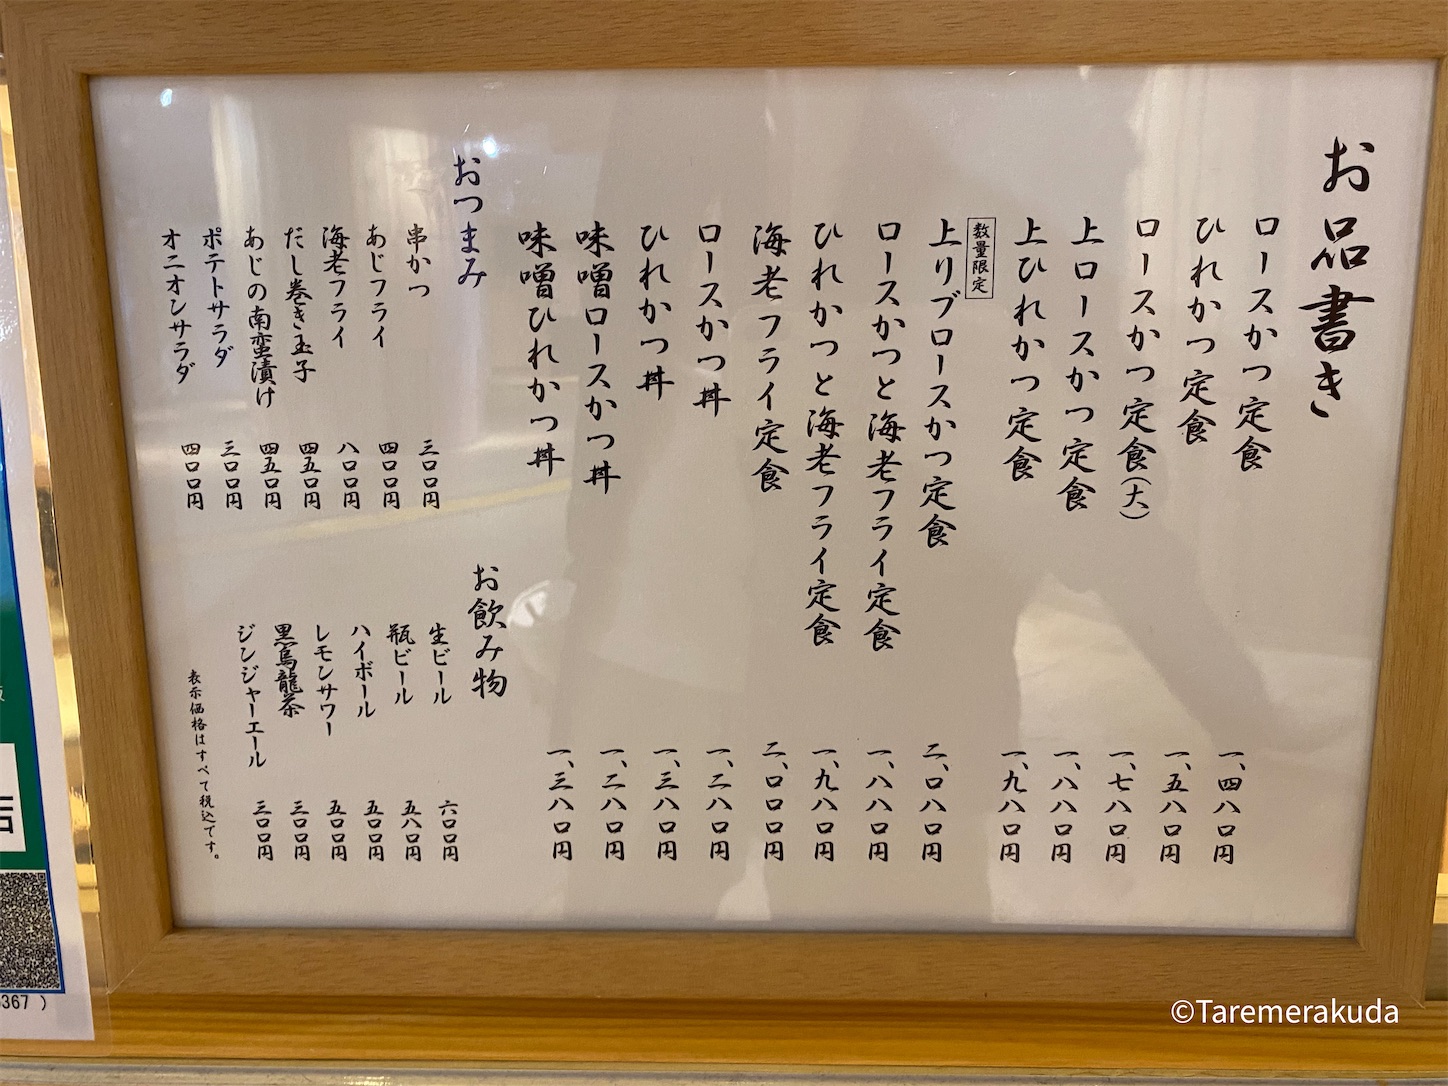 お品書き
ロースかつ定食 一、四八〇円
ひれかつ定食 一、五八〇円
ロースかつ定食(大) 一、七八〇円
上ロースかつ定食 一、八八〇円
上ひれかつ定食 一、九八〇円
数量限定
上リブロースかつ定食 二、〇八〇円
ロースかつと海老フライ定食 一、八八〇円
ひれかつと海老フライ定食 一、九八〇円
海老フライ定食 二、〇〇〇円
ロースかつ丼 一、二八〇円
ひれかつ丼 一、三八〇円
味噌ロースかつ丼 一、二八〇円
味噌ひれかつ丼 一、三八〇円
おつまみ
串かつ 三〇〇円
あじフライ 四〇〇円
海老フライ 八〇〇円
だし巻き玉子 四五〇円
あじの南蛮漬け 四五〇円
ポテトサラダ 三〇〇円
オニオンサラダ 四〇〇円
お飲み物
生ビール 六〇〇円
瓶ビール 五八〇円
ハイボール 五〇〇円
レモンサワー 五〇〇円
黒烏龍茶 三〇〇円
ジンジャーエール 三〇〇円
表示価格はすべて税込です。
367 )
©Taremerakuda